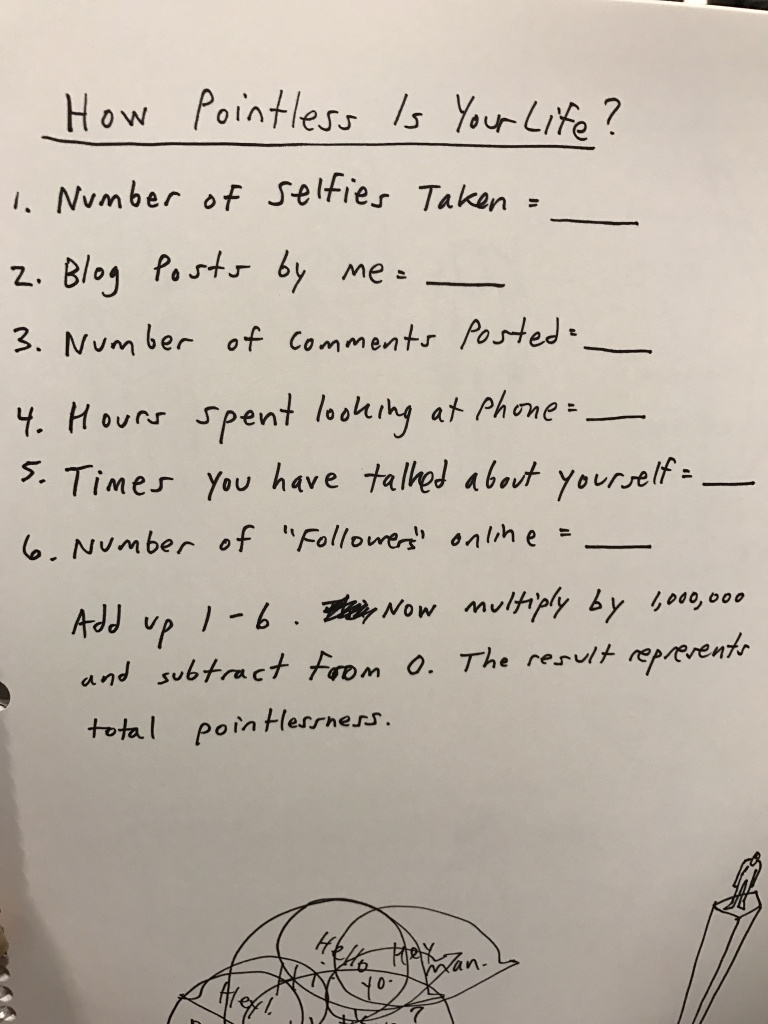 How Pointless Is Your Life?
1. Number of Selfies Taken = ____
2. Blog Posts by me = ____
3. Number of Comments Posted = ____
4. Hours spent looking at phone = ____
5. Times you have talked about yourself = ____
6. Number of "Followers" online = ____
Add up 1-6. Now multiply by 1,000,000
and subtract from 0. The result represents
total pointlessness.
Hello Hey
man.
yo.
Hey!
?